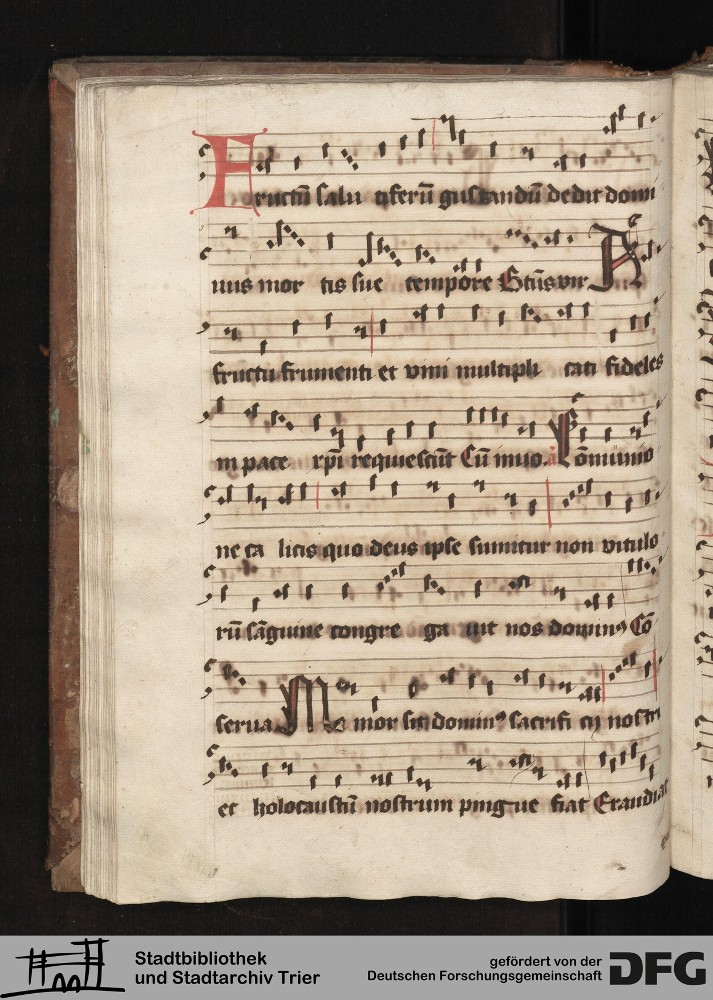 Fructū salu tiferū gustandū dedit domi
nus mor tis sue tempore Btūs vir A
fructu frumenti et vini multipli cati fideles
in pace xpi requiescūt Cū inuo. Cōmunio
ne ca licis quo deus ipse sumitur non vitulo
rū sāguine congre ga uit nos dominꝰ Cō
serua Me mor sit dominꝰ sacrifi cij nostri
et holocaustū nostrum pingue fiat Exaudiat
Stadtbibliothek
und Stadtarchiv Trier
gefördert von der
Deutschen Forschungsgemeinschaft
DFG